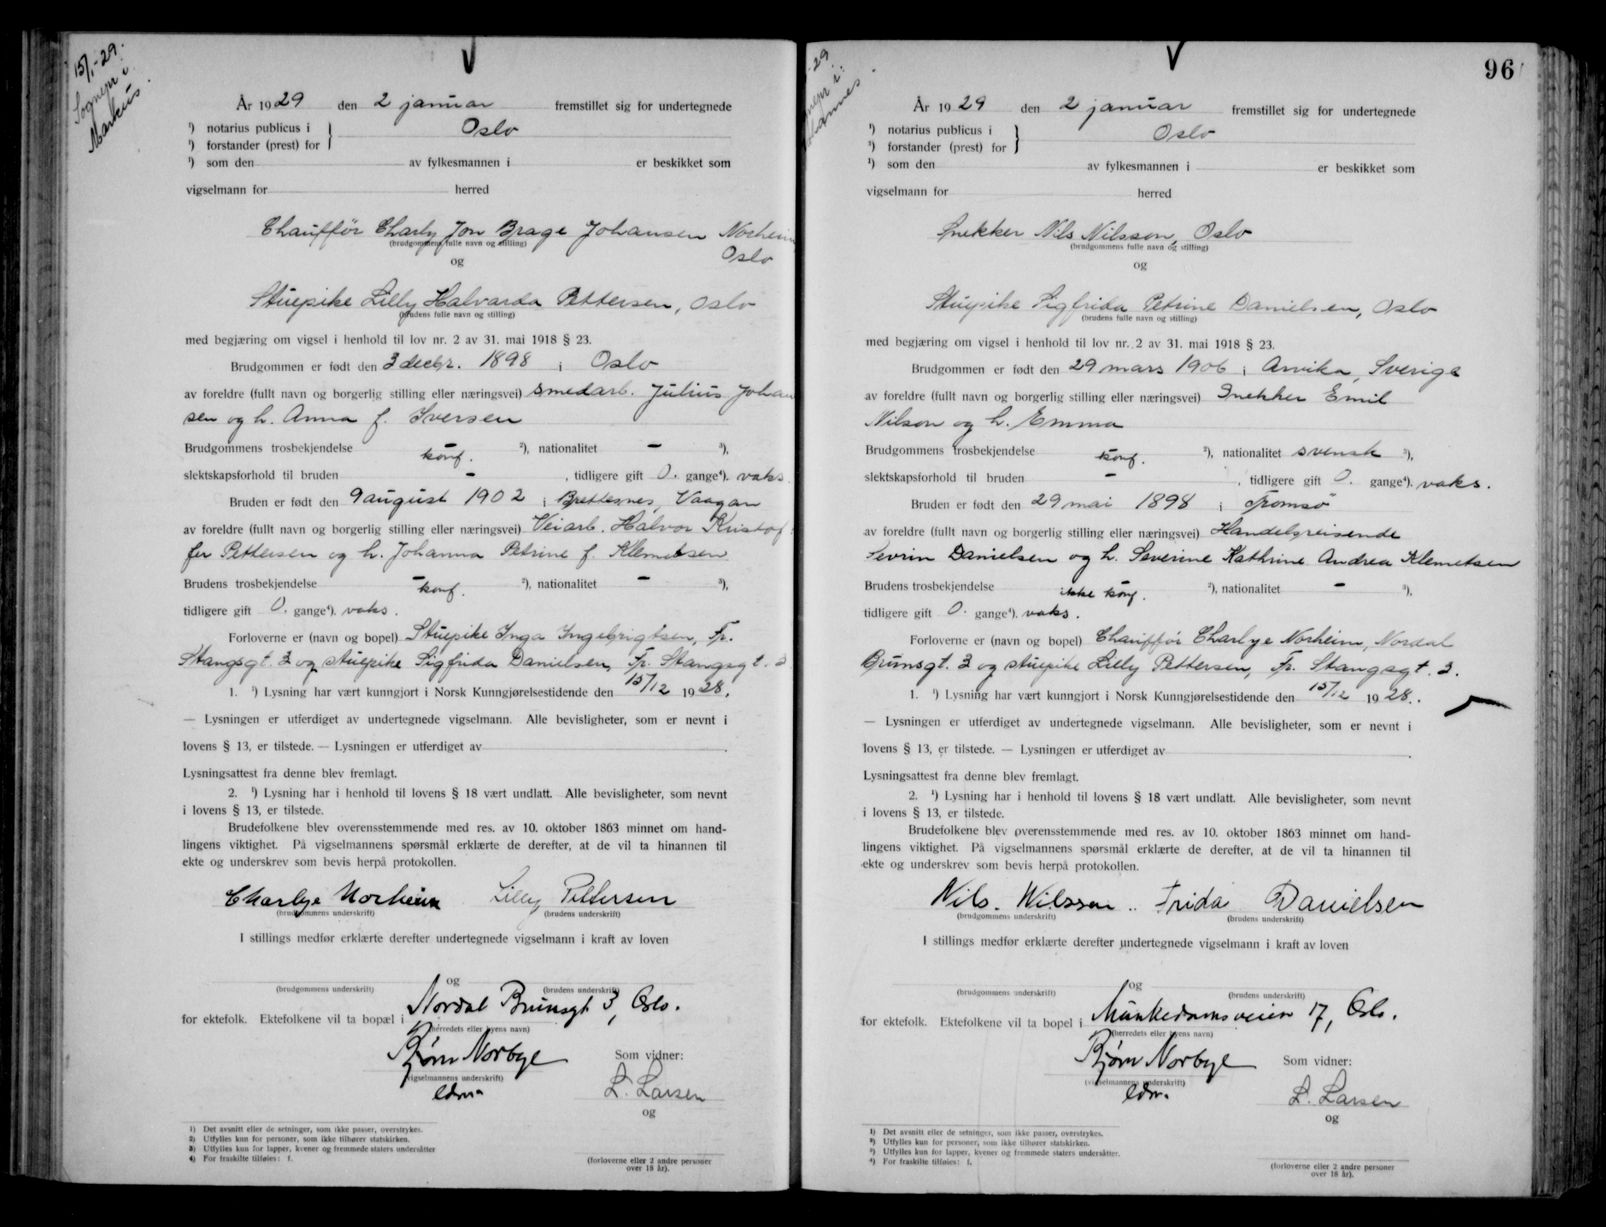 15/1-29.
Sognepr i
Markus.
År 1929 den 2 januar fremstillet sig for undertegnede
¹) notarius publicus i } Oslo
¹) forstander (prest) for
¹) som den av fylkesmannen i er beskikket som
vigselmann for herred
Chauffør Charly Jon Brage Johansen Norheim
(brudgommens fulle navn og stilling)
Oslo
og
Stuepike Lilly Halvarda Pettersen, Oslo
(brudens fulle navn og stilling)
med begjæring om vigsel i henhold til lov nr. 2 av 31. mai 1918 § 23.
Brudgommen er født den 3 decbr. 1898 i Oslo
av foreldre (fullt navn og borgerlig stilling eller næringsvei) smedarb. Julius Johan
sen og h. Anna f. Iversen
Brudgommens trosbekjendelse - konf. ²), nationalitet - ³),
slektskapsforhold til bruden - , tidligere gift 0. gange⁴). vaks.
Bruden er født den 9 august 1902 i Brettesnes, Vaagan
av foreldre (fullt navn og borgerlig stilling eller næringsvei) Veiarb. Halvor Kristof
fer Pettersen og h. Johanna Petrine f. Klemetsen
Brudens trosbekjendelse - konf. ²), nationalitet - ³),
tidligere gift 0. gange⁴). vaks.
Forloverne er (navn og bopel) Stuepike Inga Ingebrigtsen, Fr.
Stangsgt. 3 og stuepike Sigfrida Danielsen, Fr. Stangsgt. 3
1. ¹) Lysning har vært kunngjort i Norsk Kunngjørelsestidende den 15/12 1928.
— Lysningen er utferdiget av undertegnede vigselmann. Alle bevisligheter, som er nevnt i
lovens § 13, er tilstede. — Lysningen er utferdiget av .
Lysningsattest fra denne blev fremlagt.
2. ¹) Lysning har i henhold til lovens § 18 vært undlatt. Alle bevisligheter, som nevnt
i lovens § 13, er tilstede.
Brudefolkene blev overensstemmende med res. av 10. oktober 1863 minnet om hand-
lingens viktighet. På vigselmannens spørsmål erklærte de derefter, at de vil ta hinannen til
ekte og underskrev som bevis herpå protokollen.
Charlye Norheim Lilly Pettersen
(brudgommens underskrift) (brudens underskrift)
I stillings medfør erklærte derefter undertegnede vigselmann i kraft av loven
og
(brudgommens underskrift) (brudens underskrift)
for ektefolk. Ektefolkene vil ta bopæl i Nordal Brunsgt 3, Oslo.
(herredets eller byens navn)
Bjørn Norbye Som vidner:
(vigselmannens underskrift)
edm. L. Larsen
og
1) Det avsnitt eller de setninger, som ikke passer, overstrykes.
2) Utfylles kun for personer, som ikke tilhører statskirken.
3) Utfylles kun for lapper, kvener og fremmede staters undersåtter
4) For fraskilte tilføies: f.
(forloverne eller 2 andre personer
over 18 år).
-29
96
År 1929 den 2 januar fremstillet sig for undertegnede
¹) notarius publicus i } Oslo
¹) forstander (prest) for
¹) som den av fylkesmannen i er beskikket som
vigselmann for herred
Snekker Nils Nilsson, Oslo
(brudgommens fulle navn og stilling)
og
Stuepike Sigfrida Petrine Danielsen, Oslo
(brudens fulle navn og stilling)
med begjæring om vigsel i henhold til lov nr. 2 av 31. mai 1918 § 23.
Brudgommen er født den 29 mars 1906 i Arvika, Sverige
av foreldre (fullt navn og borgerlig stilling eller næringsvei) Snekker Emil
Nilson og h. Emma
Brudgommens trosbekjendelse - konf. ²), nationalitet svensk ³),
slektskapsforhold til bruden - , tidligere gift 0. gange⁴). vaks.
Bruden er født den 29 mai 1898 i Tromsø
av foreldre (fullt navn og borgerlig stilling eller næringsvei) Handelsreisende
Sevrin Danielsen og h. Severine Kathrine Andrea Klemetsen
Brudens trosbekjendelse - ikke konf. ²), nationalitet - ³),
tidligere gift 0. gange⁴). vaks.
Forloverne er (navn og bopel) Chauffør Charlye Norheim, Nordal
Brunsgt. 3 og stuepike Lilly Pettersen, Fr. Stangsgt. 3.
1. ¹) Lysning har vært kunngjort i Norsk Kunngjørelsestidende den 15/12 1928.
— Lysningen er utferdiget av undertegnede vigselmann. Alle bevisligheter, som er nevnt i
lovens § 13, er tilstede. — Lysningen er utferdiget av .
Lysningsattest fra denne blev fremlagt.
2. ¹) Lysning har i henhold til lovens § 18 vært undlatt. Alle bevisligheter, som nevnt
i lovens § 13, er tilstede.
Brudefolkene blev overensstemmende med res. av 10. oktober 1863 minnet om hand-
lingens viktighet. På vigselmannens spørsmål erklærte de derefter, at de vil ta hinannen til
ekte og underskrev som bevis herpå protokollen.
Nils. Nilsson Frida Danielsen
(brudgommens underskrift) (brudens underskrift)
I stillings medfør erklærte derefter undertegnede vigselmann i kraft av loven
og
(brudgommens underskrift) (brudens underskrift)
for ektefolk. Ektefolkene vil ta bopel i Munkedamsveien 17, Oslo.
(herredets eller byens navn)
Bjørn Norbye Som vidner:
(vigselmannens underskrift)
edm. L. Larsen
og
¹) Det avsnitt eller de setninger, som ikke passer, overstrykes.
²) Utfylles kun for personer, som ikke tilhører statskirken.
³) Utfylles kun for lapper, kvener og fremmede staters undersåtter.
⁴) For fraskilte tilføies: f.
(forloverne eller 2 andre personer
over 18 år).